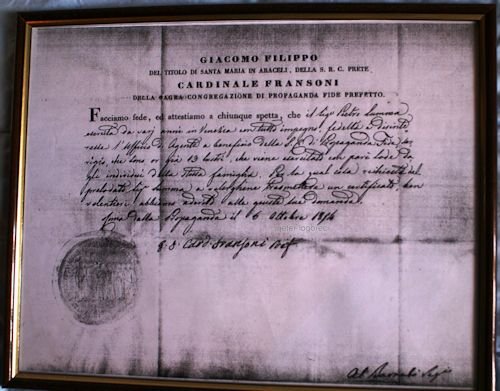 GIACOMO FILIPPO
DEL TITOLO DI SANTA MARIA IN ARACELI, DELLA S. R. C. PRETE
CARDINALE FRANSONI
DELLA SAGRA CONGREGAZIONE DI PROPAGANDA FIDE PREFETTO.
Facciamo fede, ed attestiamo a chiunque spetta, che il Sigr Pietro Summa
esercita da varj anni in Venezia con tutto impegno, fedeltà e
l'Officio di Agente a beneficio della di Propaganda Fide,
che sono or già 13 lustri, che viene esercitato con pari lode da
gli individui della stessa famiglia. Per la qual cosa richiesti dal
prelodato Sigr Summa a volergliene trasmettere un certificato ben
volentieri abbiamo aderito alla giusta sua domanda.
Roma dalla Propaganda il 6 Ottobre
Card. Fransoni